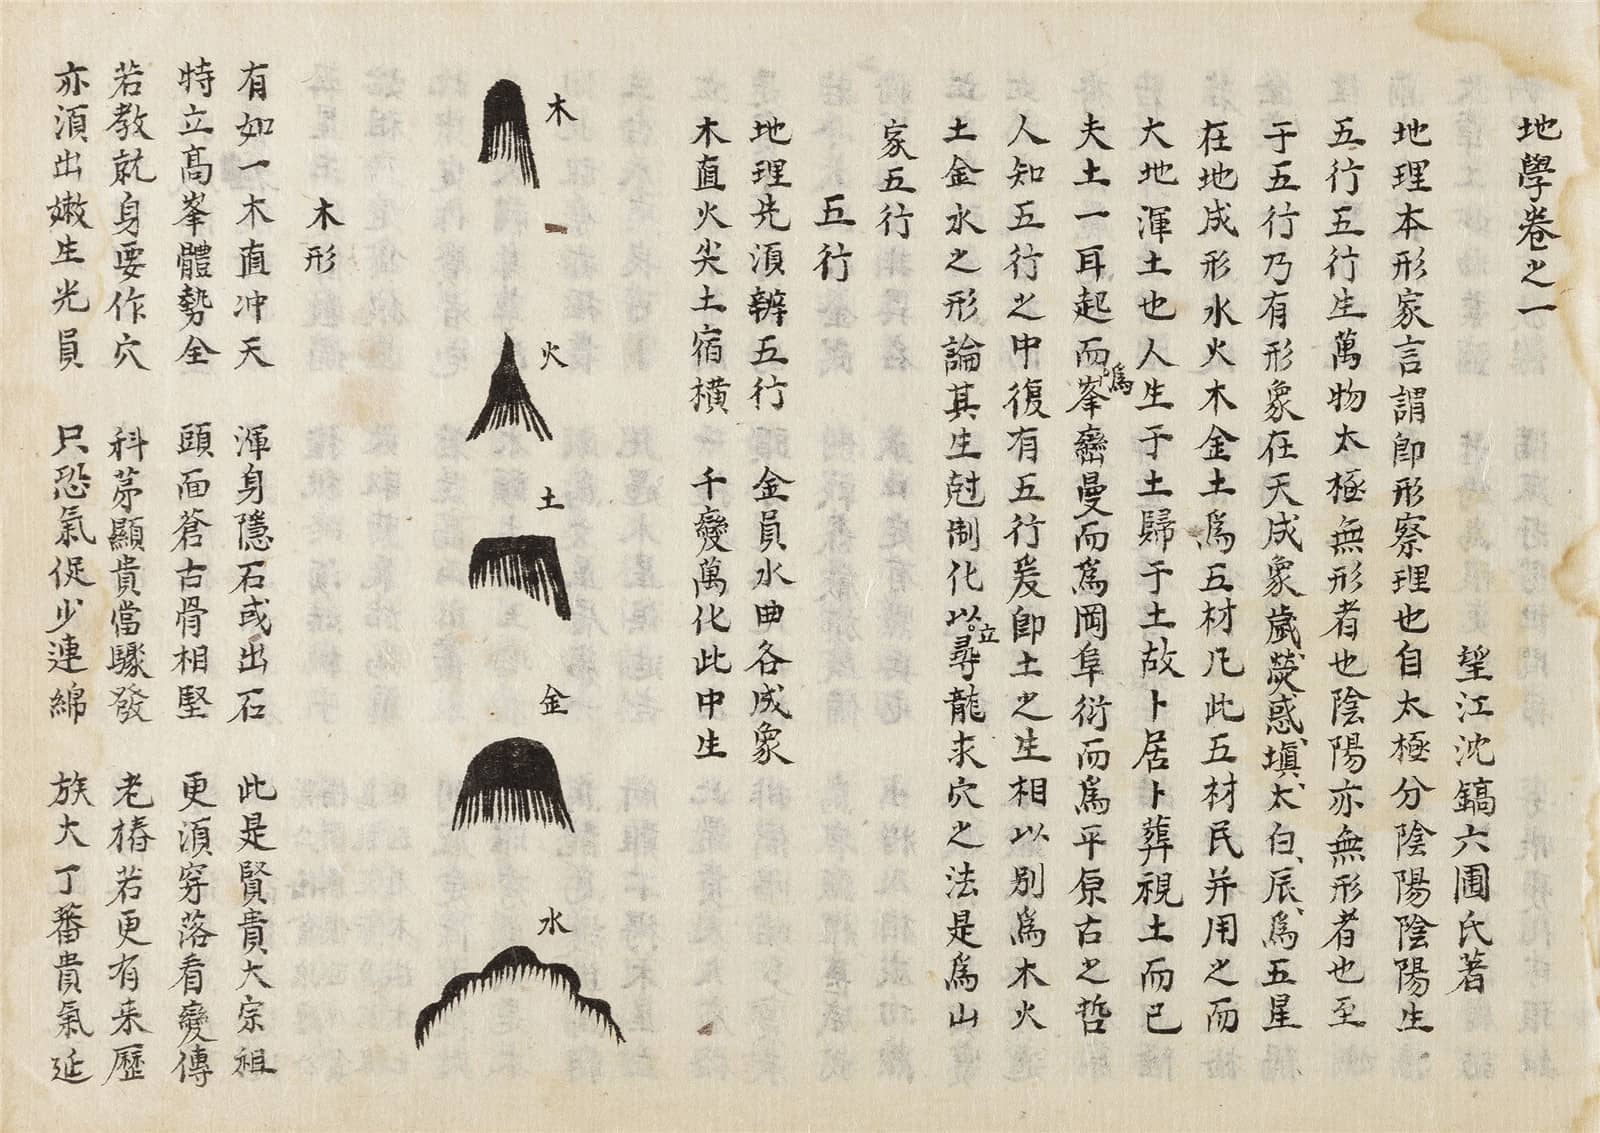 地學卷之一
望江沈鎬六圃氏著
地理本形家言謂卽形察理也自太極分陰陽陰陽生
五行五行生萬物太極無形者也陰陽亦無形者也至
于五行乃有形象在天成象歲熒惑塡太白辰爲五星
在地成形水火木金土爲五材凡此五材民并用之而
大地渾土也人生于土歸于土故卜居卜葬視土而已
夫土一耳起而爲峯巒曼而爲岡阜衍而爲平原古之哲
人知五行之中復有五行爰卽土之生相以别爲木火
土金水之形論其生尅制化以立尋龍求穴之法是爲山
家五行
五行
地理先須辨五行 金員水曲各成象
木直火尖土宿橫 千變萬化此中生
木
火
土
金
水
木形
有如一木直冲天 渾身隱石或出石 此是賢貴大宗祖
特立高峯體勢全 頭面蒼古骨相堅 更須穿落看變傳
若教就身要作穴 科苐顯貴當驟發 老樁若更有来歷
亦須出嫩生光員 只恐氣促少連綿 族大丁蕃貴氣延